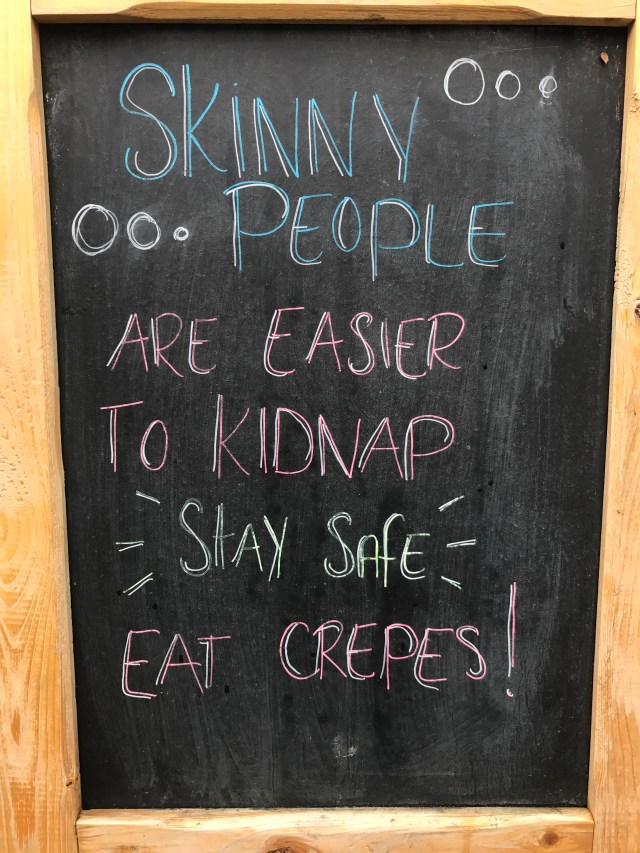 SKINNY
PEOPLE
ARE EASIER
TO KIDNAP
STAY SAFE
EAT CREPES!